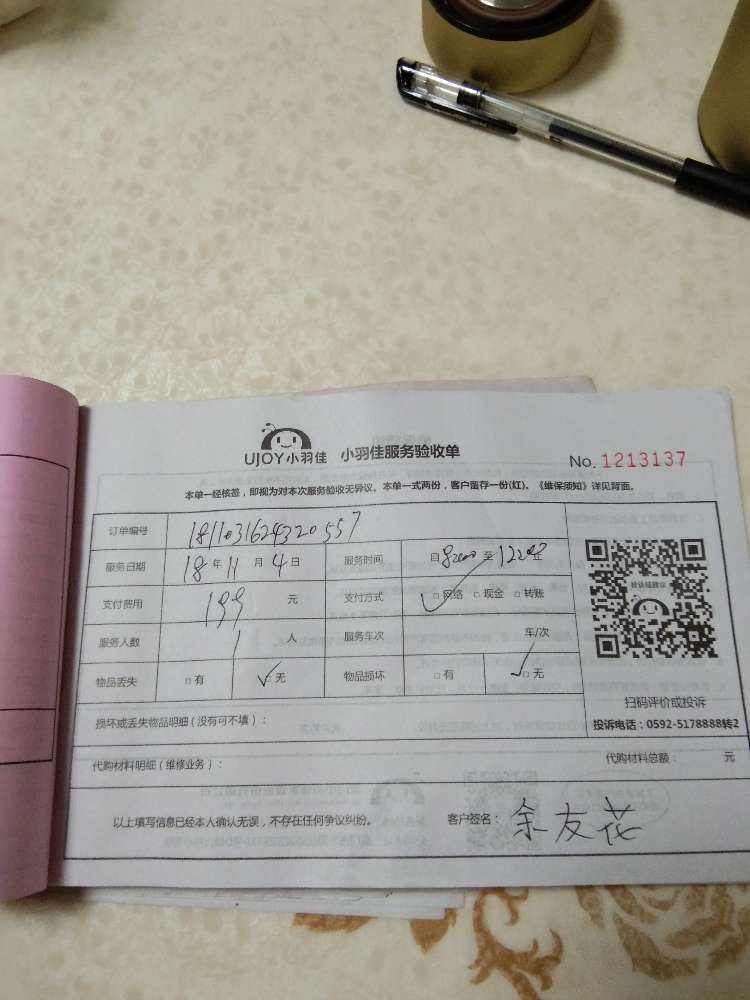 UJOY小羽佳 小羽佳服务验收单
No. 1213137
本单一经核签，即视为对本次服务验收无异议。本单一式两份，客户留存一份(红)。《维保须知》详见背面。
订单编号 1811031624320557
服务日期 18年11月4日 服务时间 自8:00至12:00止
支付费用 199元 支付方式 □网络 □现金 □转账
服务人数 1人 服务车次 车/次
物品丢失 □有 □无 物品损坏 □有 □无
扫码评价或投诉
投诉电话：0592-5178888转2
损坏或丢失物品明细（没有可不填）：
代购材料明细（维修业务）： 代购材料总额： 元
以上填写信息已经本人确认无误，不存在任何争议纠纷。 客户签名：余友花